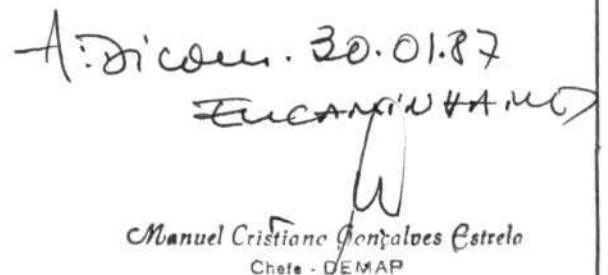 A: Dicom. 30.01.87
ENCAMINHAMO
Manuel Cristiano Gonçalves Estrela
Chefe - DEMAP